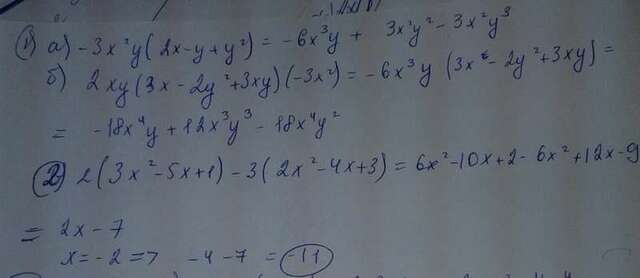 ① а) -3x²y(2x-y+y²) = -6x³y + 3x²y² - 3x²y³
б) 2xy(3x-2y²+3xy)(-3x²) = -6x³y (3x - 2y²+3xy) =
= -18x⁴y + 12x³y³ - 18x⁴y²
② 2(3x²-5x+1) - 3(2x²-4x+3) = 6x²-10x+2-6x²+12x-9
= 2x-7
x=-2 => -4-7 = -11